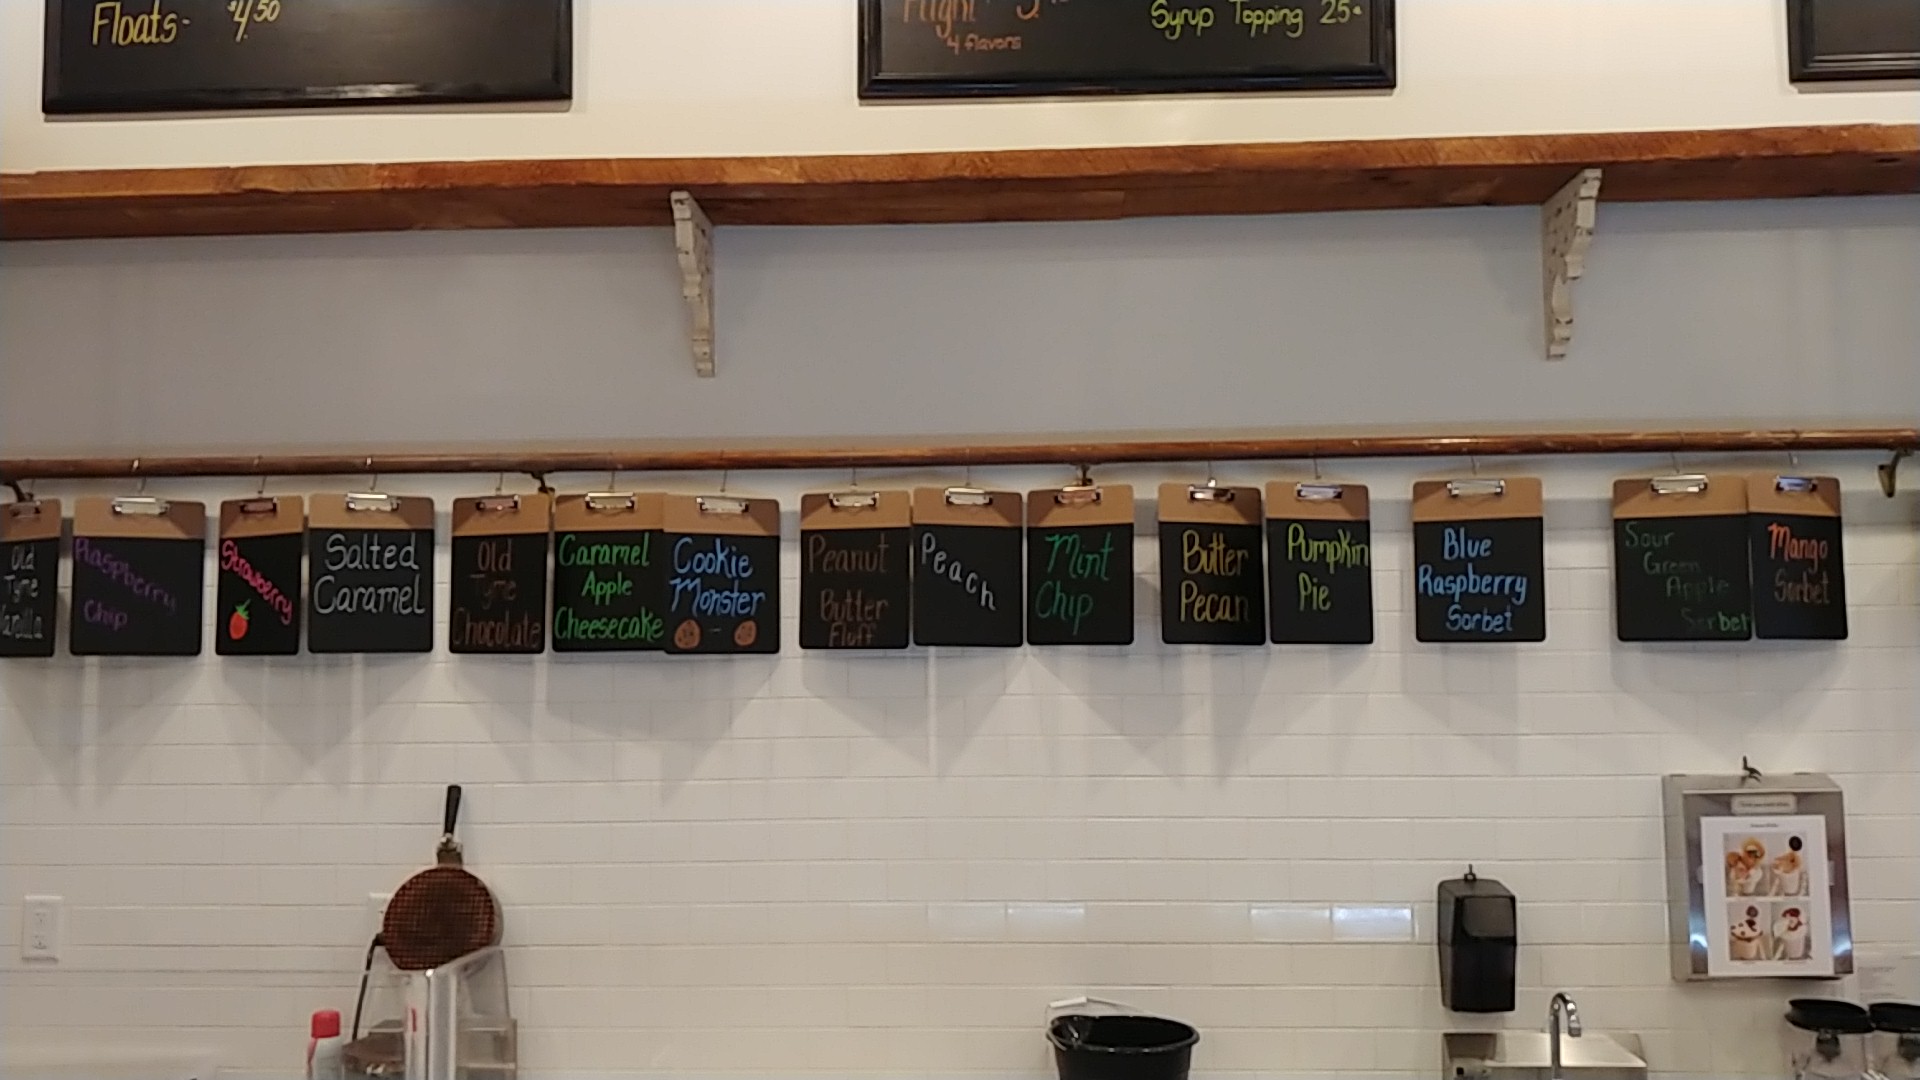 Floats- $4.50
Flight
4 flavors
Syrup Topping 25¢
Old
Tyme
Vanilla
Raspberry
Chip
Strawberry
Salted
Caramel
Old
Tyme
Chocolate
Caramel
Apple
Cheesecake
Cookie
Monster
Peanut
Butter
Fluff
Peach
Mint
Chip
Butter
Pecan
Pumpkin
Pie
Blue
Raspberry
Sorbet
Sour
Green
Apple
Sorbet
Mango
Sorbet